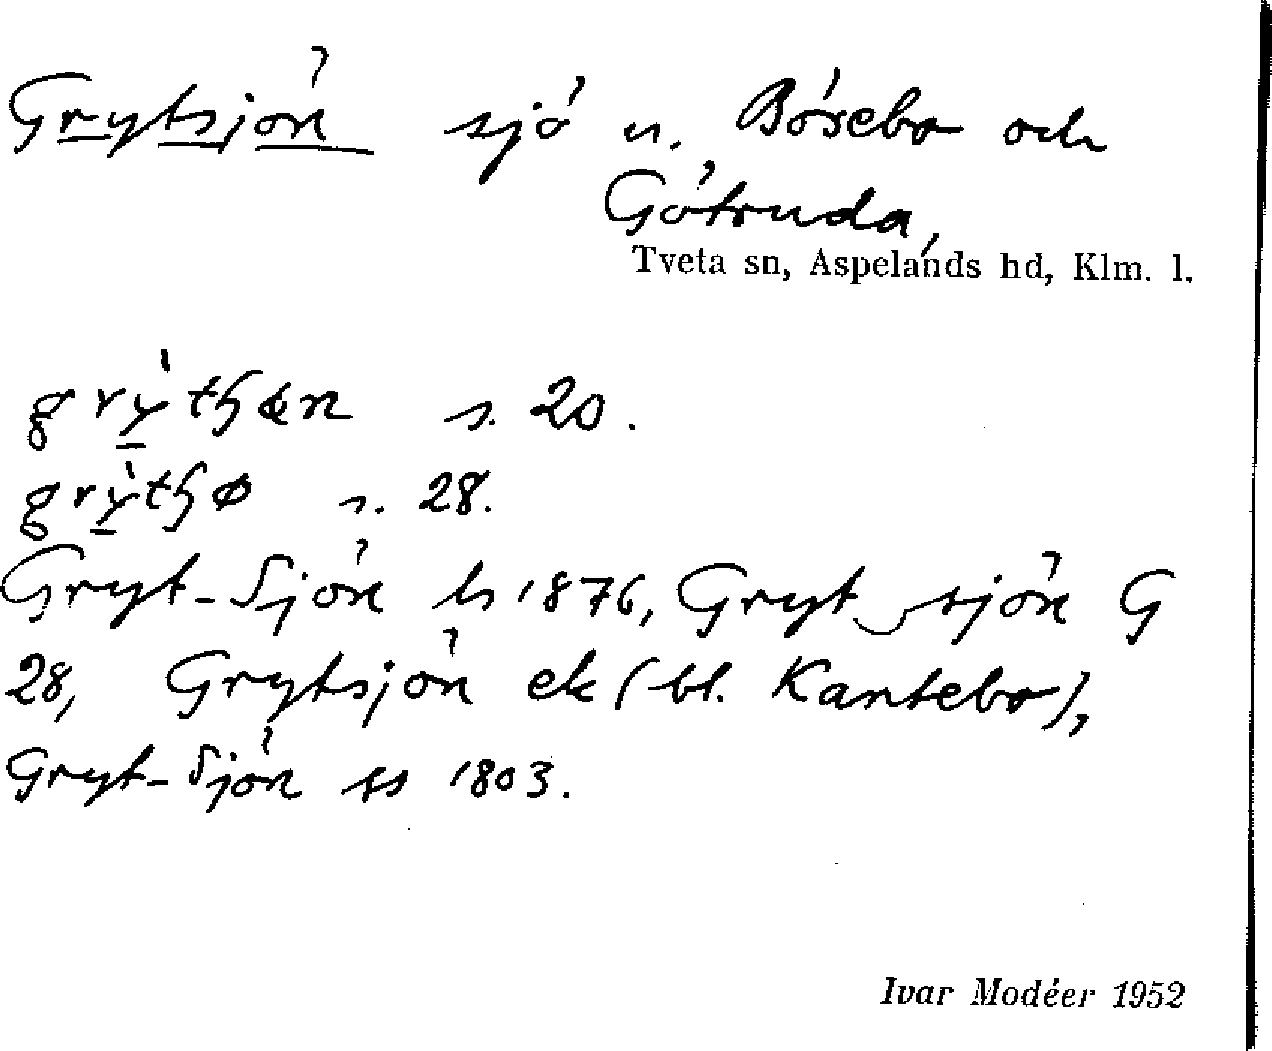 Grytsjön sjö n. Bösebo och
Götruda,
Tveta sn, Aspelands hd, Klm. l.
s. 20.
s. 28.
Gryt-Sjön hs 1876, Gryt sjön G
28, Grytsjön ek (bl. Kantebo),
Gryt-Sjön ss 1803.
Ivar Modéer 1952